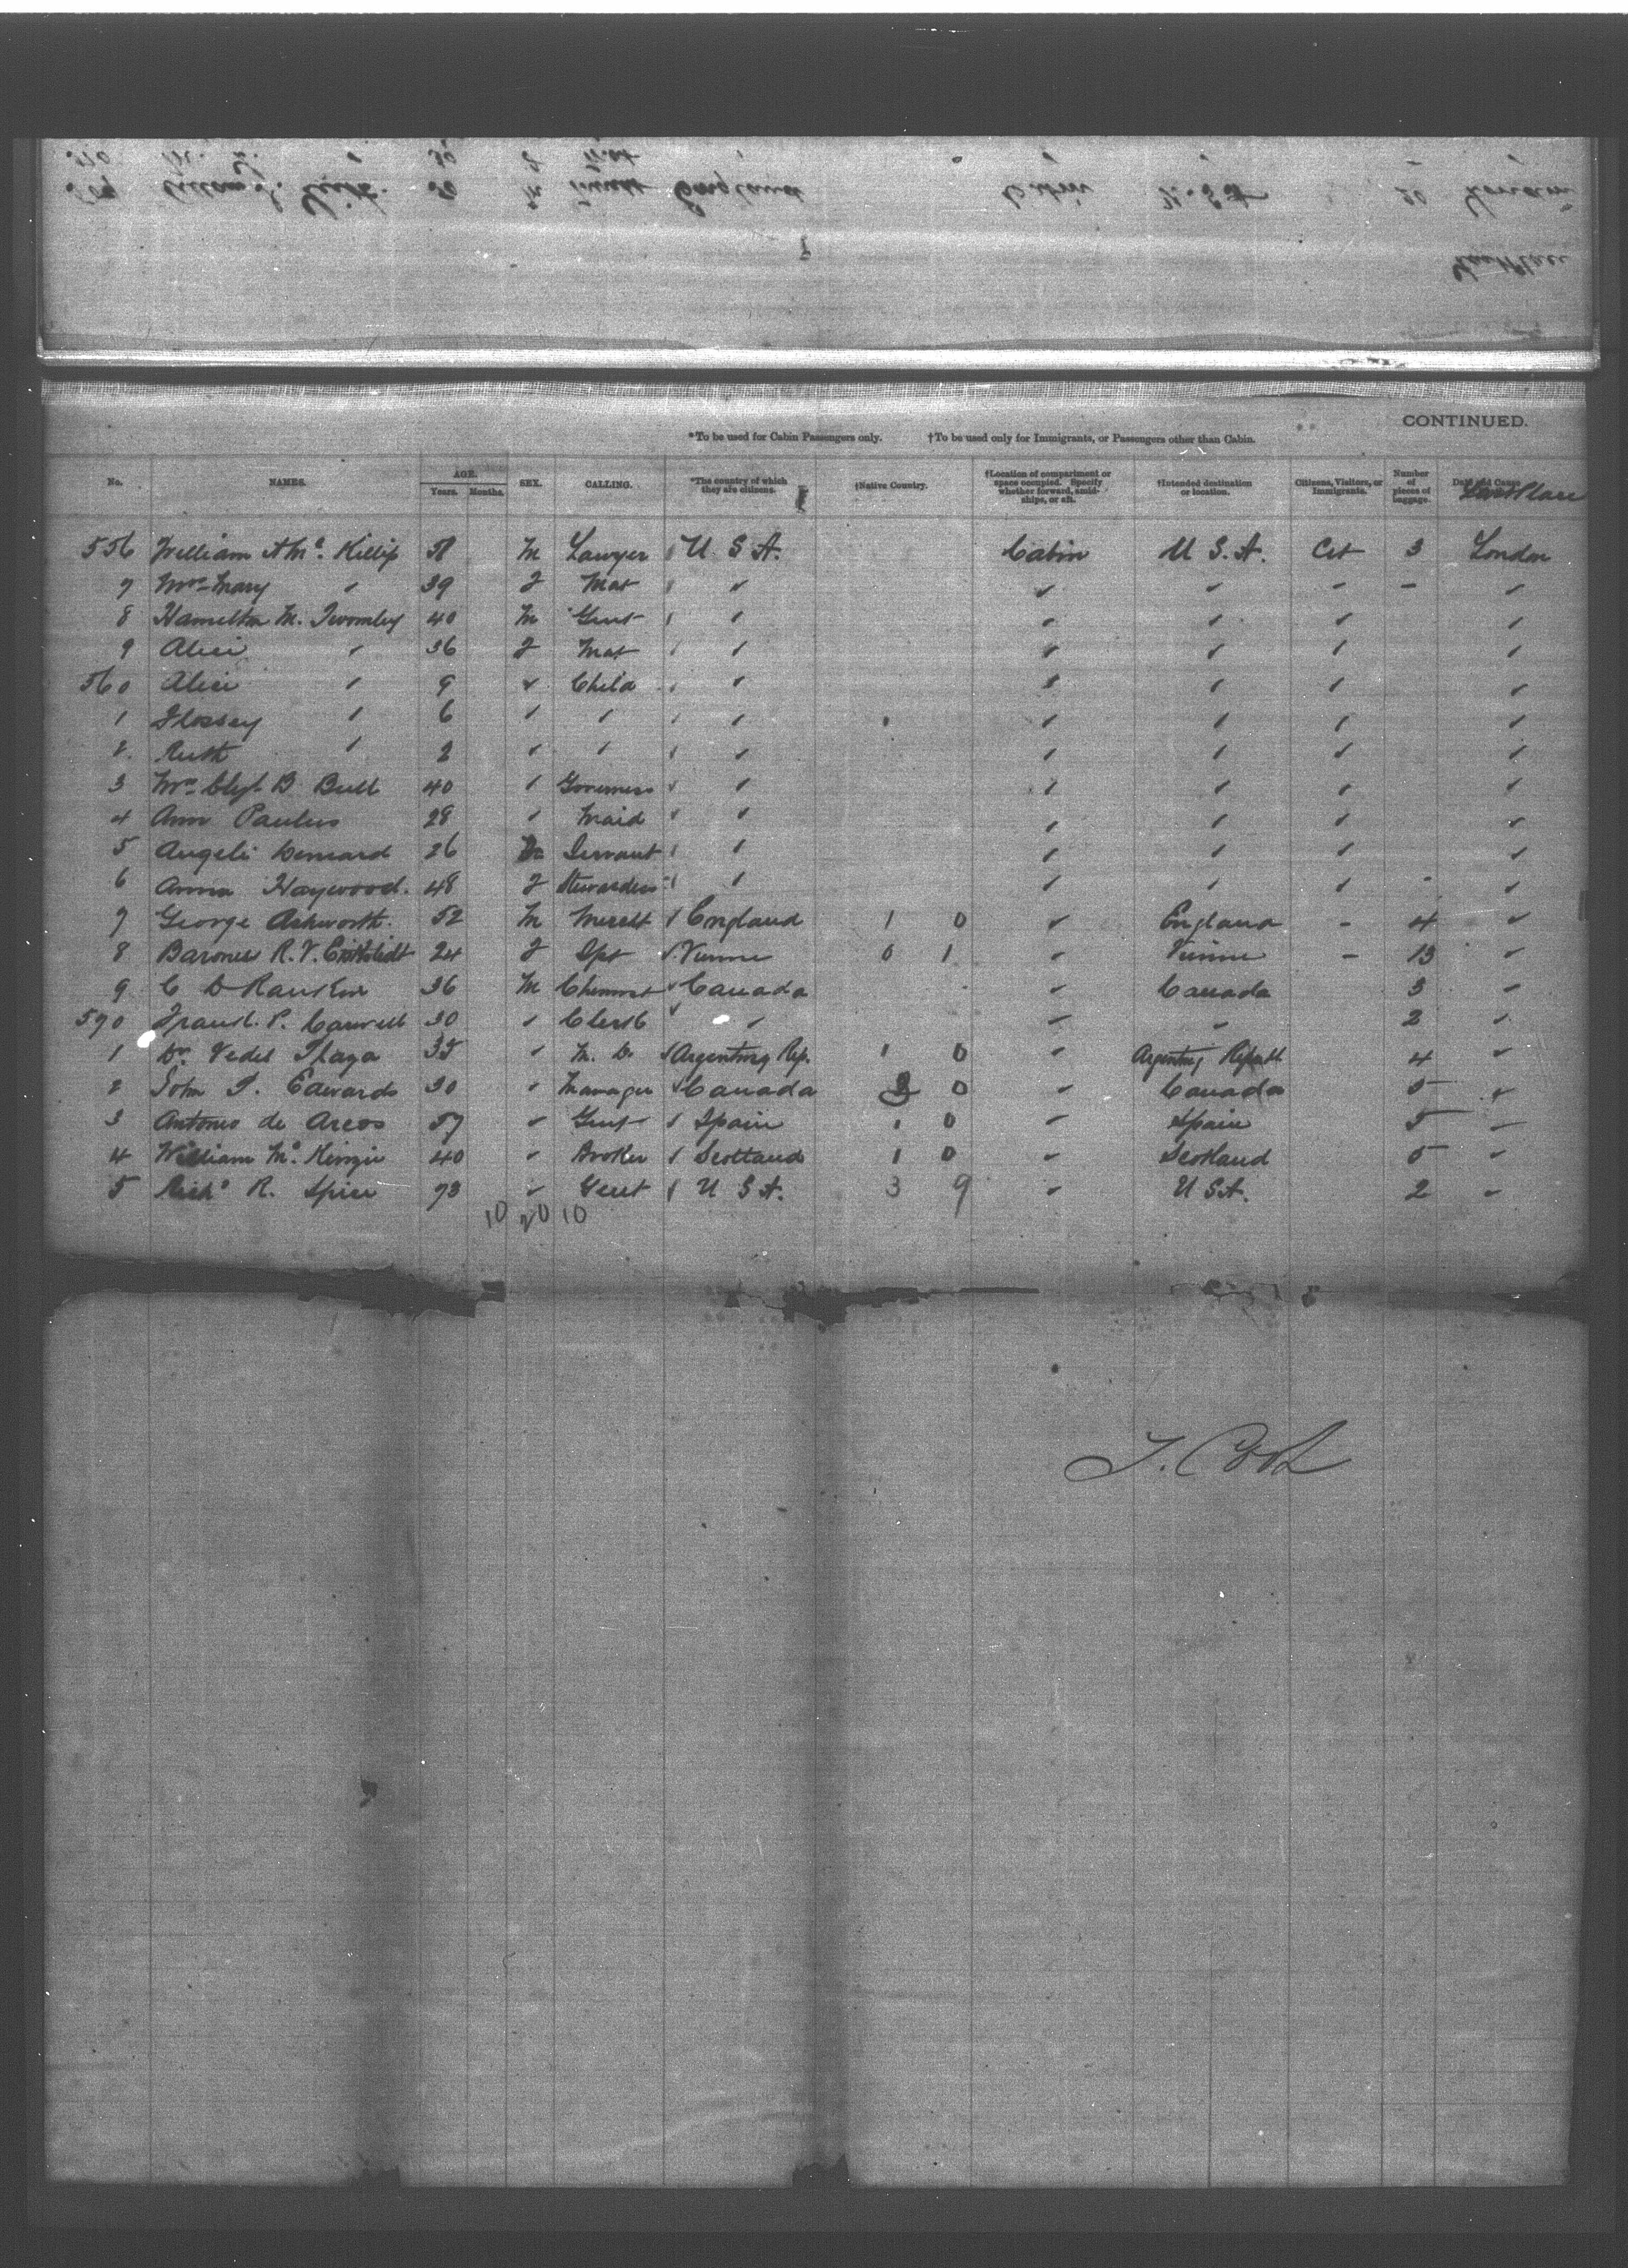 CONTINUED.
*To be used for Cabin Passengers only. †To be used only for Immigrants, or Passengers other than Cabin.
No. NAMES. AGE. Years. Months. SEX. CALLING. *The country of which they are citizens. †Native Country. †Location of compartment or space occupied. Specify whether forward, amidships, or aft. †Intended destination or location. Citizens, Visitors, or Immigrants. Number of pieces of baggage. Last Place
556 William A Mc Killip 58 M Lawyer U S A. Cabin U. S. A. Cit 3 London
7 Mrs Mary " 39 F Mat " " " " - "
8 Hamilton M. Twombly 40 M Gent " " " " "
9 Alice " 36 F Mat " " " " "
560 Alice " 9 " Child " " " " "
1 Flossey " 6 " " " " " " "
2 Ruth " 2 " " " " " " "
3 Mrs B Bull 40 " Governess " " " " "
4 Ann Paulus 28 " Maid " " " " "
5 Angeli 26 Servant " " " " "
6 Anna Haywood. 48 F Stewardess " " " " "
7 George Ashworth. 52 M Mercht England 1 0 " England - 4 "
8 Baroness R. V. 24 F Spt Vienne 0 1 " Vienne - 13 "
9 C D Rankin 36 M Canada " Canada 3 "
570 P. 30 " Clerk " " " 2 "
1 Dr. Vedel Plaza 35 " M. D. Argentina Rep. 1 0 Argentina 4 "
2 John J. Edwards 30 " Manager Canada 0 " Canada 5 "
3 Antonio de Arcos 57 " Gent Spain 1 0 " Spain 5 "
4 William Mc Kinzie 40 " Broker Scotland 1 0 " Scotland 5 "
5 Richd R. Spice 73 " Gent U S A. 3 9 " U S A. 2 "
10 20 10